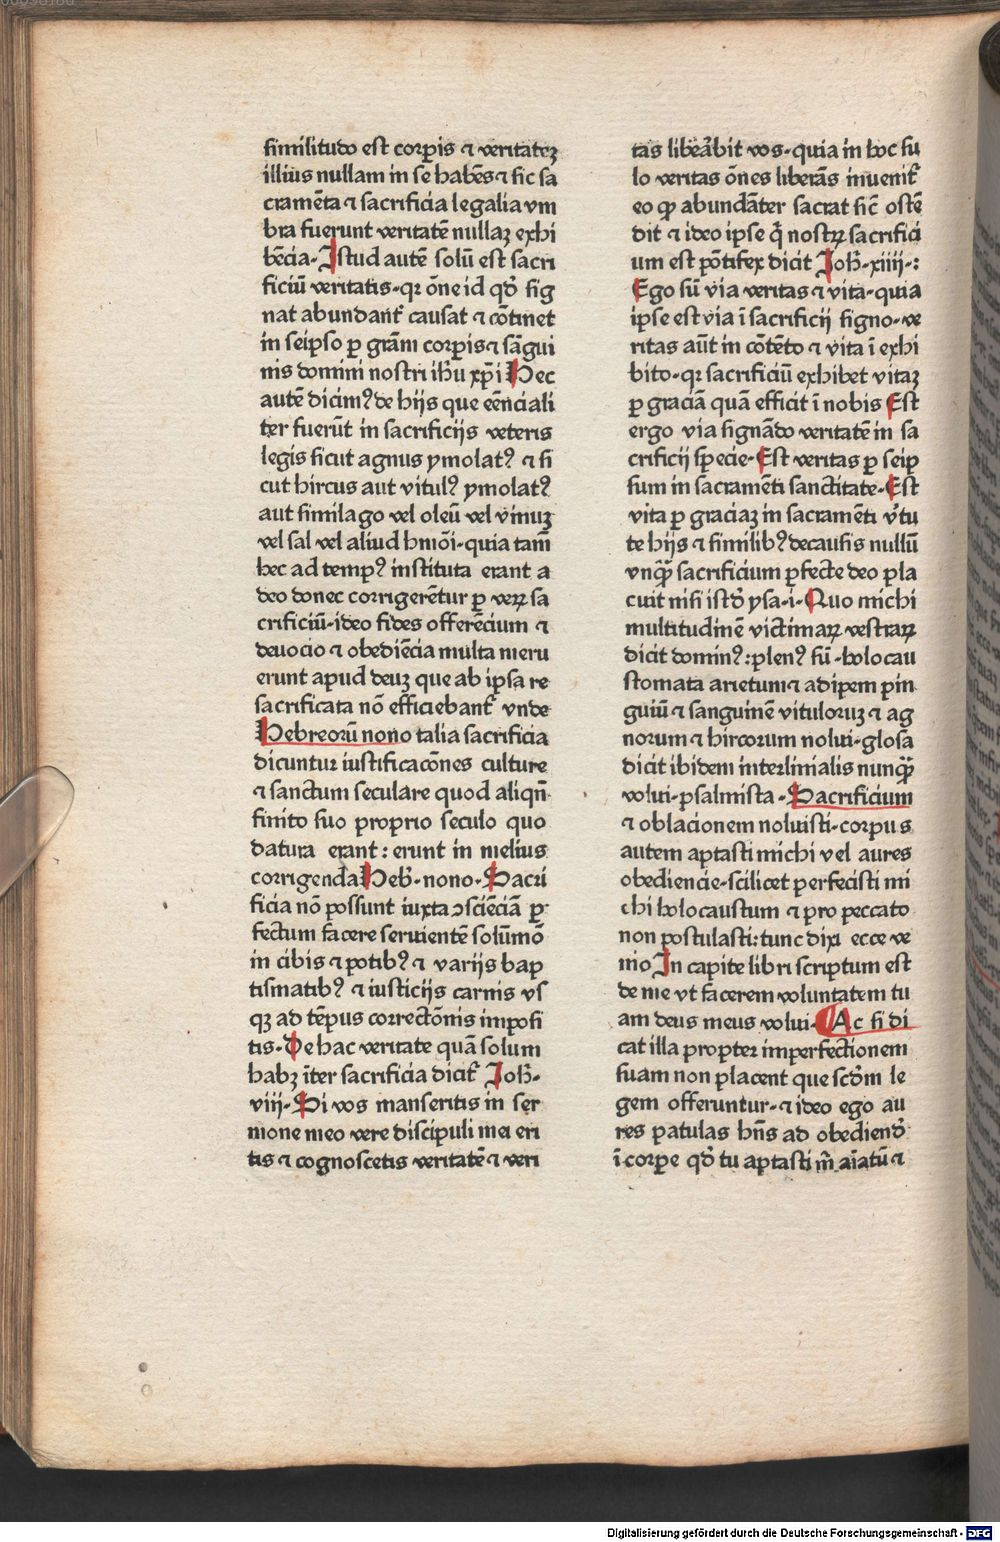 similitudo est corꝑis ⁊ veritateꝫ
illius nullam in se habēs ⁊ sic sa
cramēta ⁊ sacrificia legalia vm
bra fuerunt veritatē nullaꝫ exhi
bēcia. Istud autē solū est sacri
ficiū veritatis. qꝛ ōne id qđ sig
nat abundant̄ causat ⁊ cōtinet
in seipso ꝑ grām corꝑis ⁊ sāgui
nis domini nostri ihū xp̄i Hec
autē dicimꝰ de hijs que eēnciali
ter fuerūt in sacrificijs veteris
legis sicut agnus ymolatꝰ ⁊ si
cut hircus aut vitulꝰ ymolatꝰ
aut similago vel oleū vel vinuꝫ
vel sal vel aliud hmōi. quia tam̄
hec ad tempꝰ instituta erant a
deo donec corrigerētur ꝑ veꝝ sa
crificiū. ideo fides offerēcium ⁊
deuocio ⁊ obediēcia multa meru
erunt apud deuꝫ que ab ipsa re
sacrificata nō efficiebant̄ vnde
Hebreorū nono talia sacrificia
dicuntur iustificacōnes culture
⁊ sanctum seculare quod aliqn̄
finito suo proprio seculo quo
datura erant : erunt in melius
corrigenda Heb̄. nono. Sacri
ficia nō possunt iuxta ↄsciēciā ꝑ
fectum facere seruientē solūmō
in cibis ⁊ potibꝰ ⁊ varijs bap
tismatibꝰ ⁊ iusticijs carnis vs
qꝫ ad tēpus correctōnis imposi
tis. De hac veritate quā solum
habꝫ īter sacrificia dicit̄ Joh̄.
viij. Si vos manseritis in ser
mone meo vere discipuli mei eri
tis ⁊ cognoscetis veritatē ⁊ veri
tas libe᷑abit vos. quia in hoc su
lo veritas ōnes liberās inuenit̄
eo ꝙ abundāter sacrat sic̄ ostē
dit ⁊ ideo ipse q̄ nostꝝ sacrifici
um est pōtifex dicit Joh̄. xiiij. :
Ego sū via veritas ⁊ vita. quia
ipse est via ī sacrificij signo. ve
ritas aūt in cōtēto ⁊ vita ī exhi
bito. qꝛ sacrificiū exhibet vitaꝫ
ꝑ graciā quā efficit ī nobis Est
ergo via signādo veritatē in sa
crificij specie. Est veritas ꝑ seip
sum in sacramēti sanctitate. Est
vita ꝑ graciaꝫ in sacramēti v̄tu
te hijs ⁊ similibꝰ de causis nullū
vnq̄ꝫ sacrificium ꝑfecte deo pla
cuit nisi istđ ysa. i. Quo michi
multitudinē victimaꝝ vestraꝝ
dicit dominꝰ : plenꝰ sū. holocau
stomata arietum ⁊ adipem pin
guiū ⁊ sanguinē vituloruꝫ ⁊ ag
norum ⁊ hircorum nolui. glosa
dicit ibidem interlinialis nunq̄ꝫ
volui. psalmista. Sacrificium
⁊ oblacionem noluisti. corpus
autem aptasti michi vel aures
obediencie. scilicet perfecisti mi
chi holocaustum ⁊ pro peccato
non postulasti : tunc dixi ecce ve
nio In capite libri scriptum est
de me vt facerem voluntatem tu
am deus meus volui. Ac si di
cat illa propter imperfectionem
suam non placent que scđm le
gem offeruntur. ⁊ ideo ego au
res patulas hn̄s ad obediendꝰ
ī corꝑe qđ tu aptasti m̄ aīatū ⁊
Digitalisierung gefördert durch die Deutsche Forschungsgemeinschaft - DFG